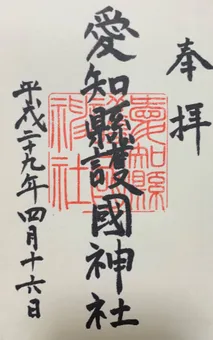 奉拝
愛知縣護國神社
愛知縣護國神社
平成二十九年四月十六日